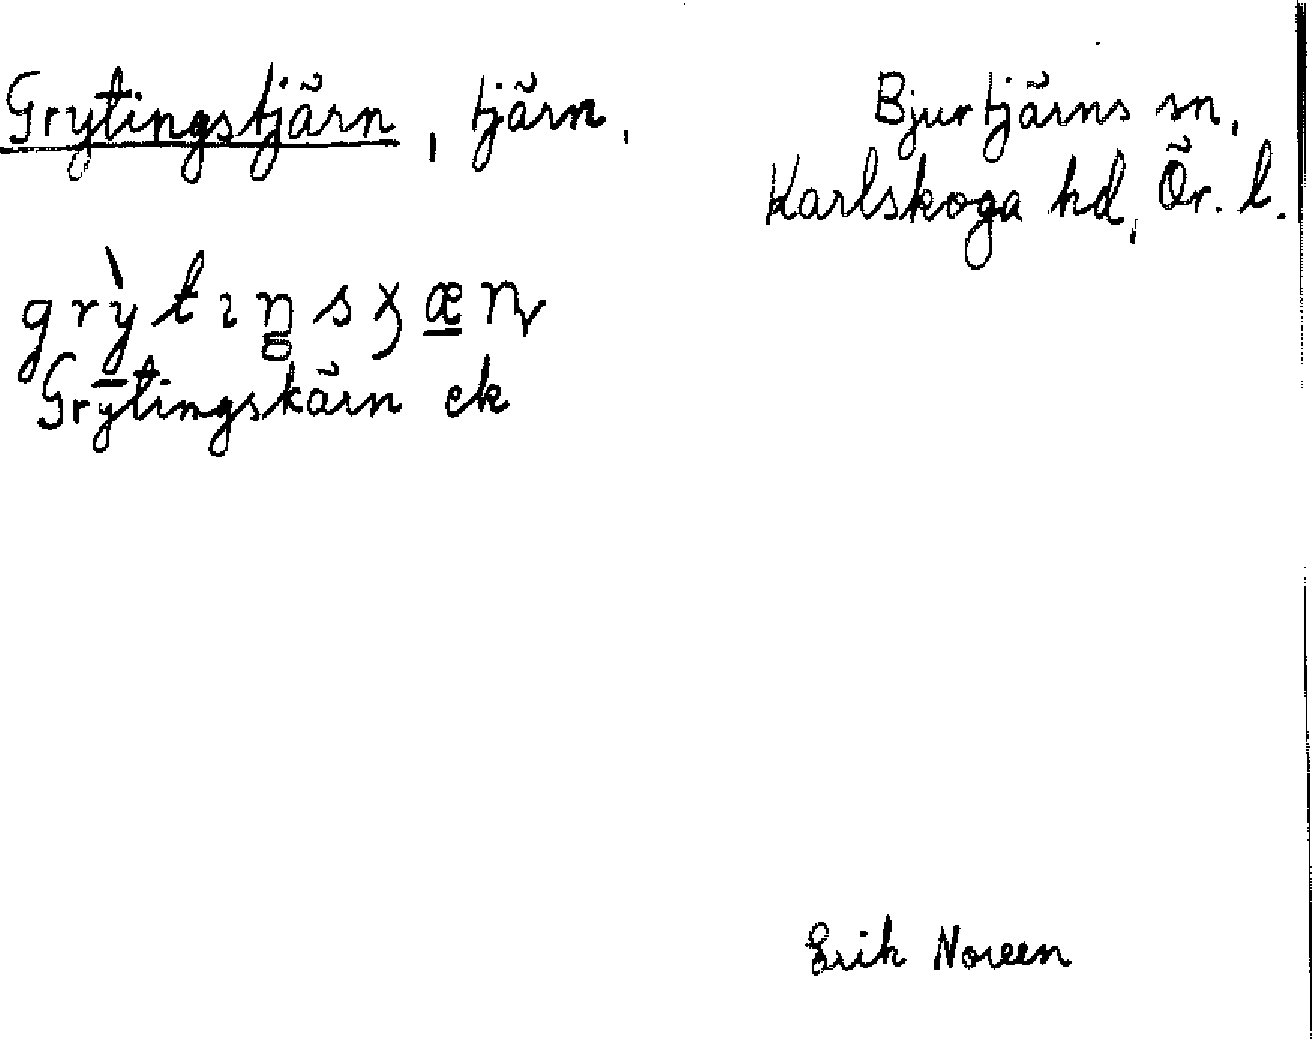 Grytingstjärn, tjärn,
Bjurtjärns sn,
Karlskoga hd, Ör. l.
Grytingskärn ek
Erik Noreen